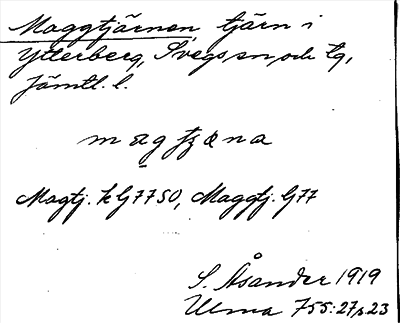 Maggtjärnen, tjärn i
Ytterberg, Svegs sn och tg,
Jämtl. l.
Magtj. k G7750, Maggtj. G77
S. Åsander 1919
Ulma 755:27 s. 23